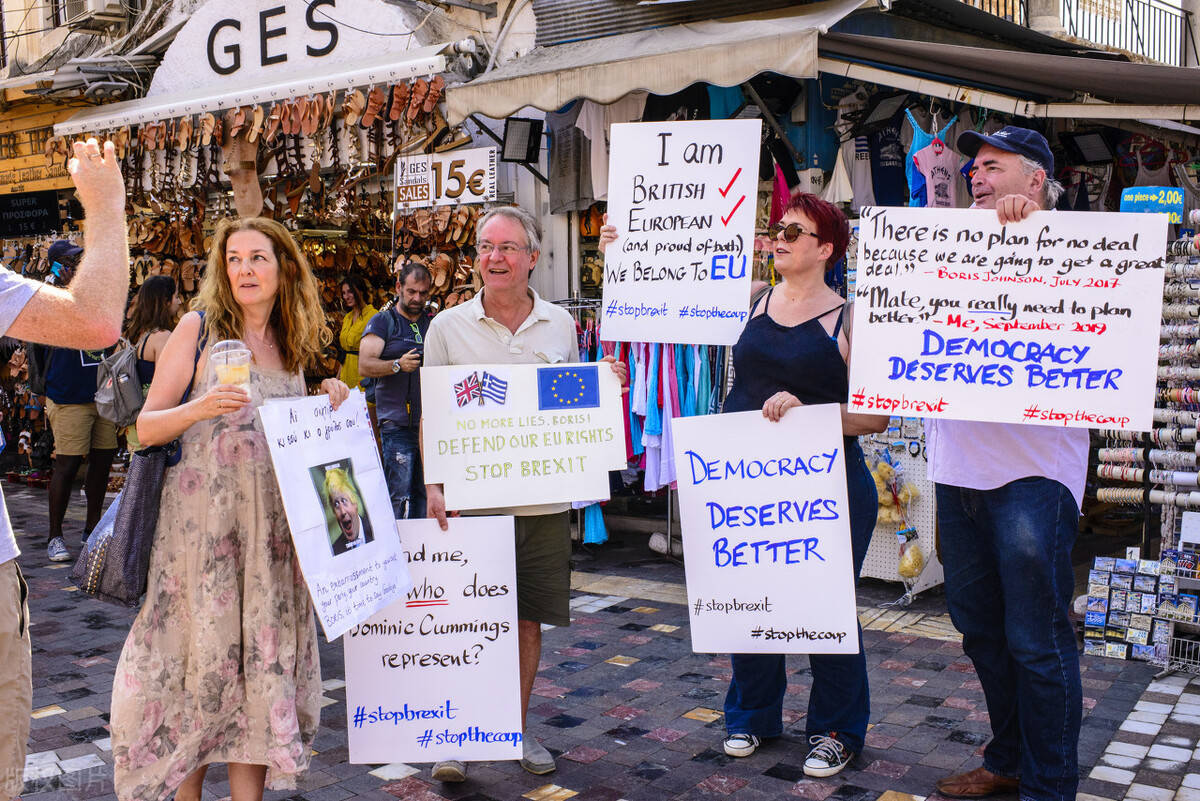 GES
GES
Sandals
SALES
15€
REAL LEATHER
SUPER
ΠΡΟΣΦΟΡΑ
15 €
I am
BRITISH ✓
EUROPEAN ✓
(and proud of both)
WE BELONG TO EU
#stopbrexit #stopthecoup
"There is no plan for no deal
because we are going to get a great
deal." - BORIS JOHNSON, JULY 2017
"Mate, you really need to plan
better." - Me, September 2019
DEMOCRACY
DESERVES BETTER
#stopbrexit #stopthecoup
2,00€
NO MORE LIES, BORIS!
DEFEND OUR EU RIGHTS
STOP BREXIT
An embarrassment to yourself
your party, your country
BORIS, it's time to say goodbye
me,
who does
Dominic Cummings
represent?
#stopbrexit
#stopthecoup
DEMOCRACY
DESERVES
BETTER
#stopbrexit
#stopthecoup